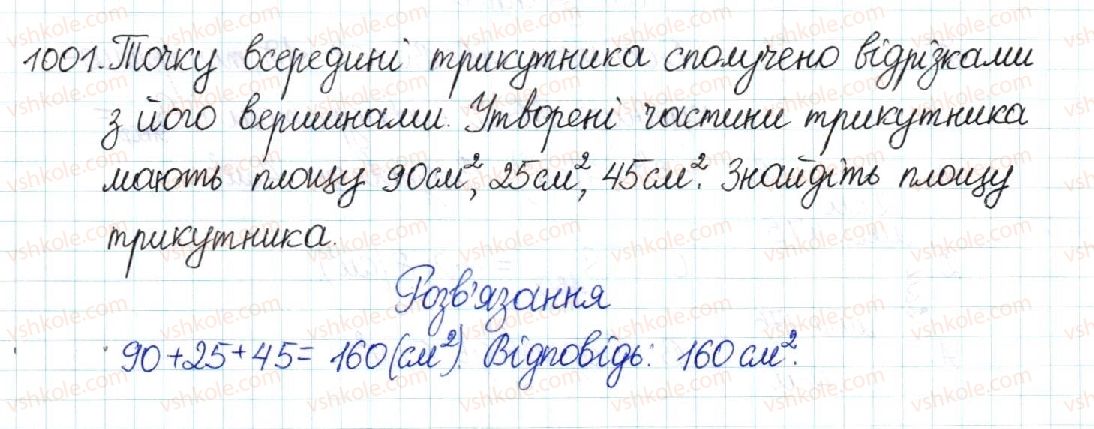 1001. Точку всередині трикутника сполучено відрізками
з його вершинами. Утворені частини трикутника
мають площу 90см², 25см², 45см². Знайдіть площу
трикутника.
Розв'язання
90+25+45= 160(см²). Відповідь: 160см².
vshkole.com